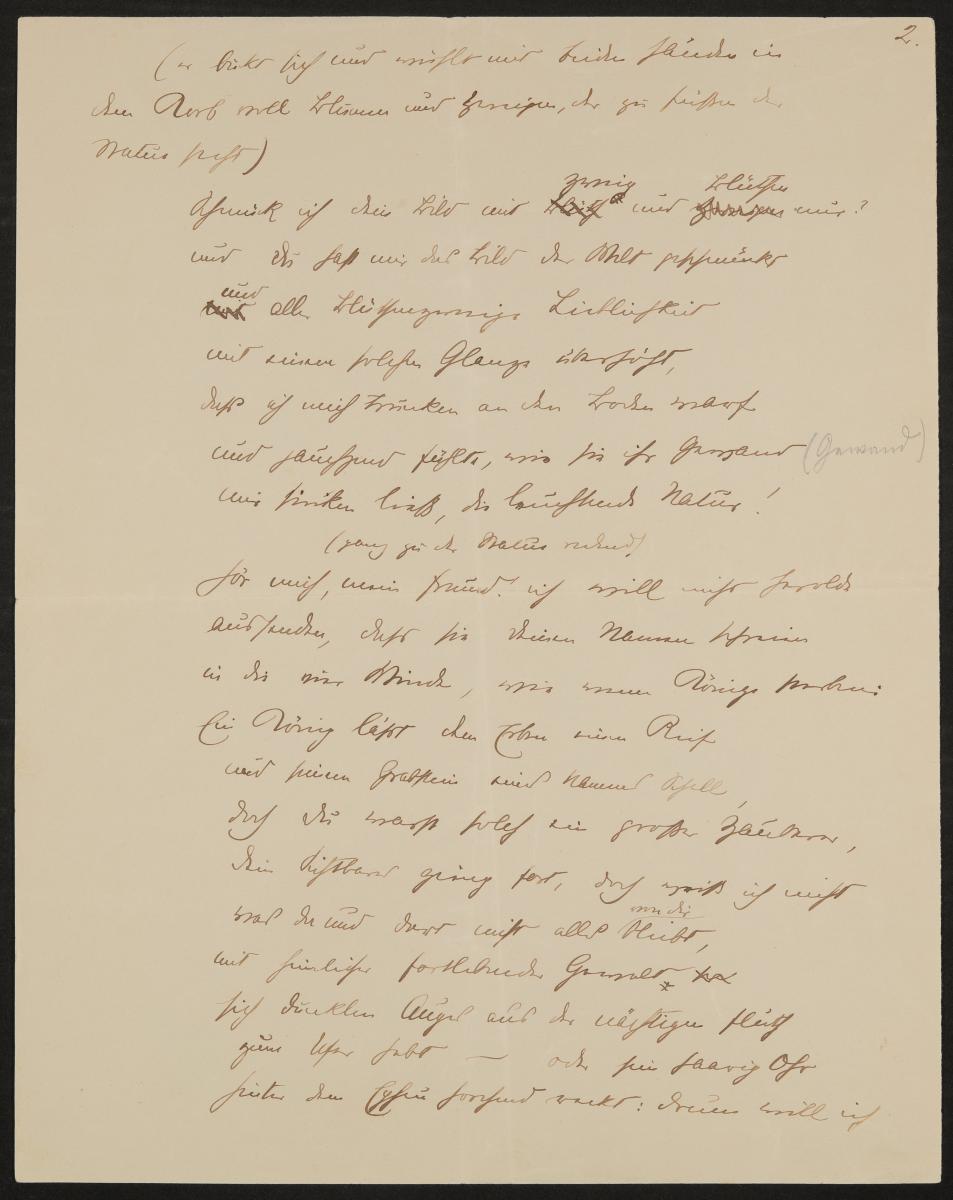 2.
(er bückt sich und wühlt mit beiden Händen in
dem Korb voll Blumen und Zweigen, der zu Füßen der
Natur steht)
Zweige Blüthen
Schmück ich dein Bild mit und nur?
und du hast mir das Bild der Welt geschmückt
und
aller Blüthenzweige Lieblichkeit
mit einem solchen Glanze überhöht,
dass ich mich trunken an den Boden warf
und jauchzend fühlte, wie sie ihr Gewand (Gewand)
mir sinken ließ, die leuchtende Natur!
(ganz zu der Natur redend)
Hör mich, mein Freund! ich will nicht Herolde
aussenden, dass sie deinen Namen schreien
in die vier Winde, wie wenn Könige sterben:
Ein König läßt dem Erben seinen Reif
und seinem Grabstein eines Namens Schall,
doch du warst solch ein großer Zauberer,
dein Sichtbares ging fort, doch weiß ich nicht
von dir
was da und dort nicht alles bleibt,
mit heimlicher fortlebender Gewalt
sich dunklen Auges aus der nächtigen Fluth
zum Ufer hebt — oder sein haarig Ohr
hinter dem Epheu horchend reckt: drum will ich